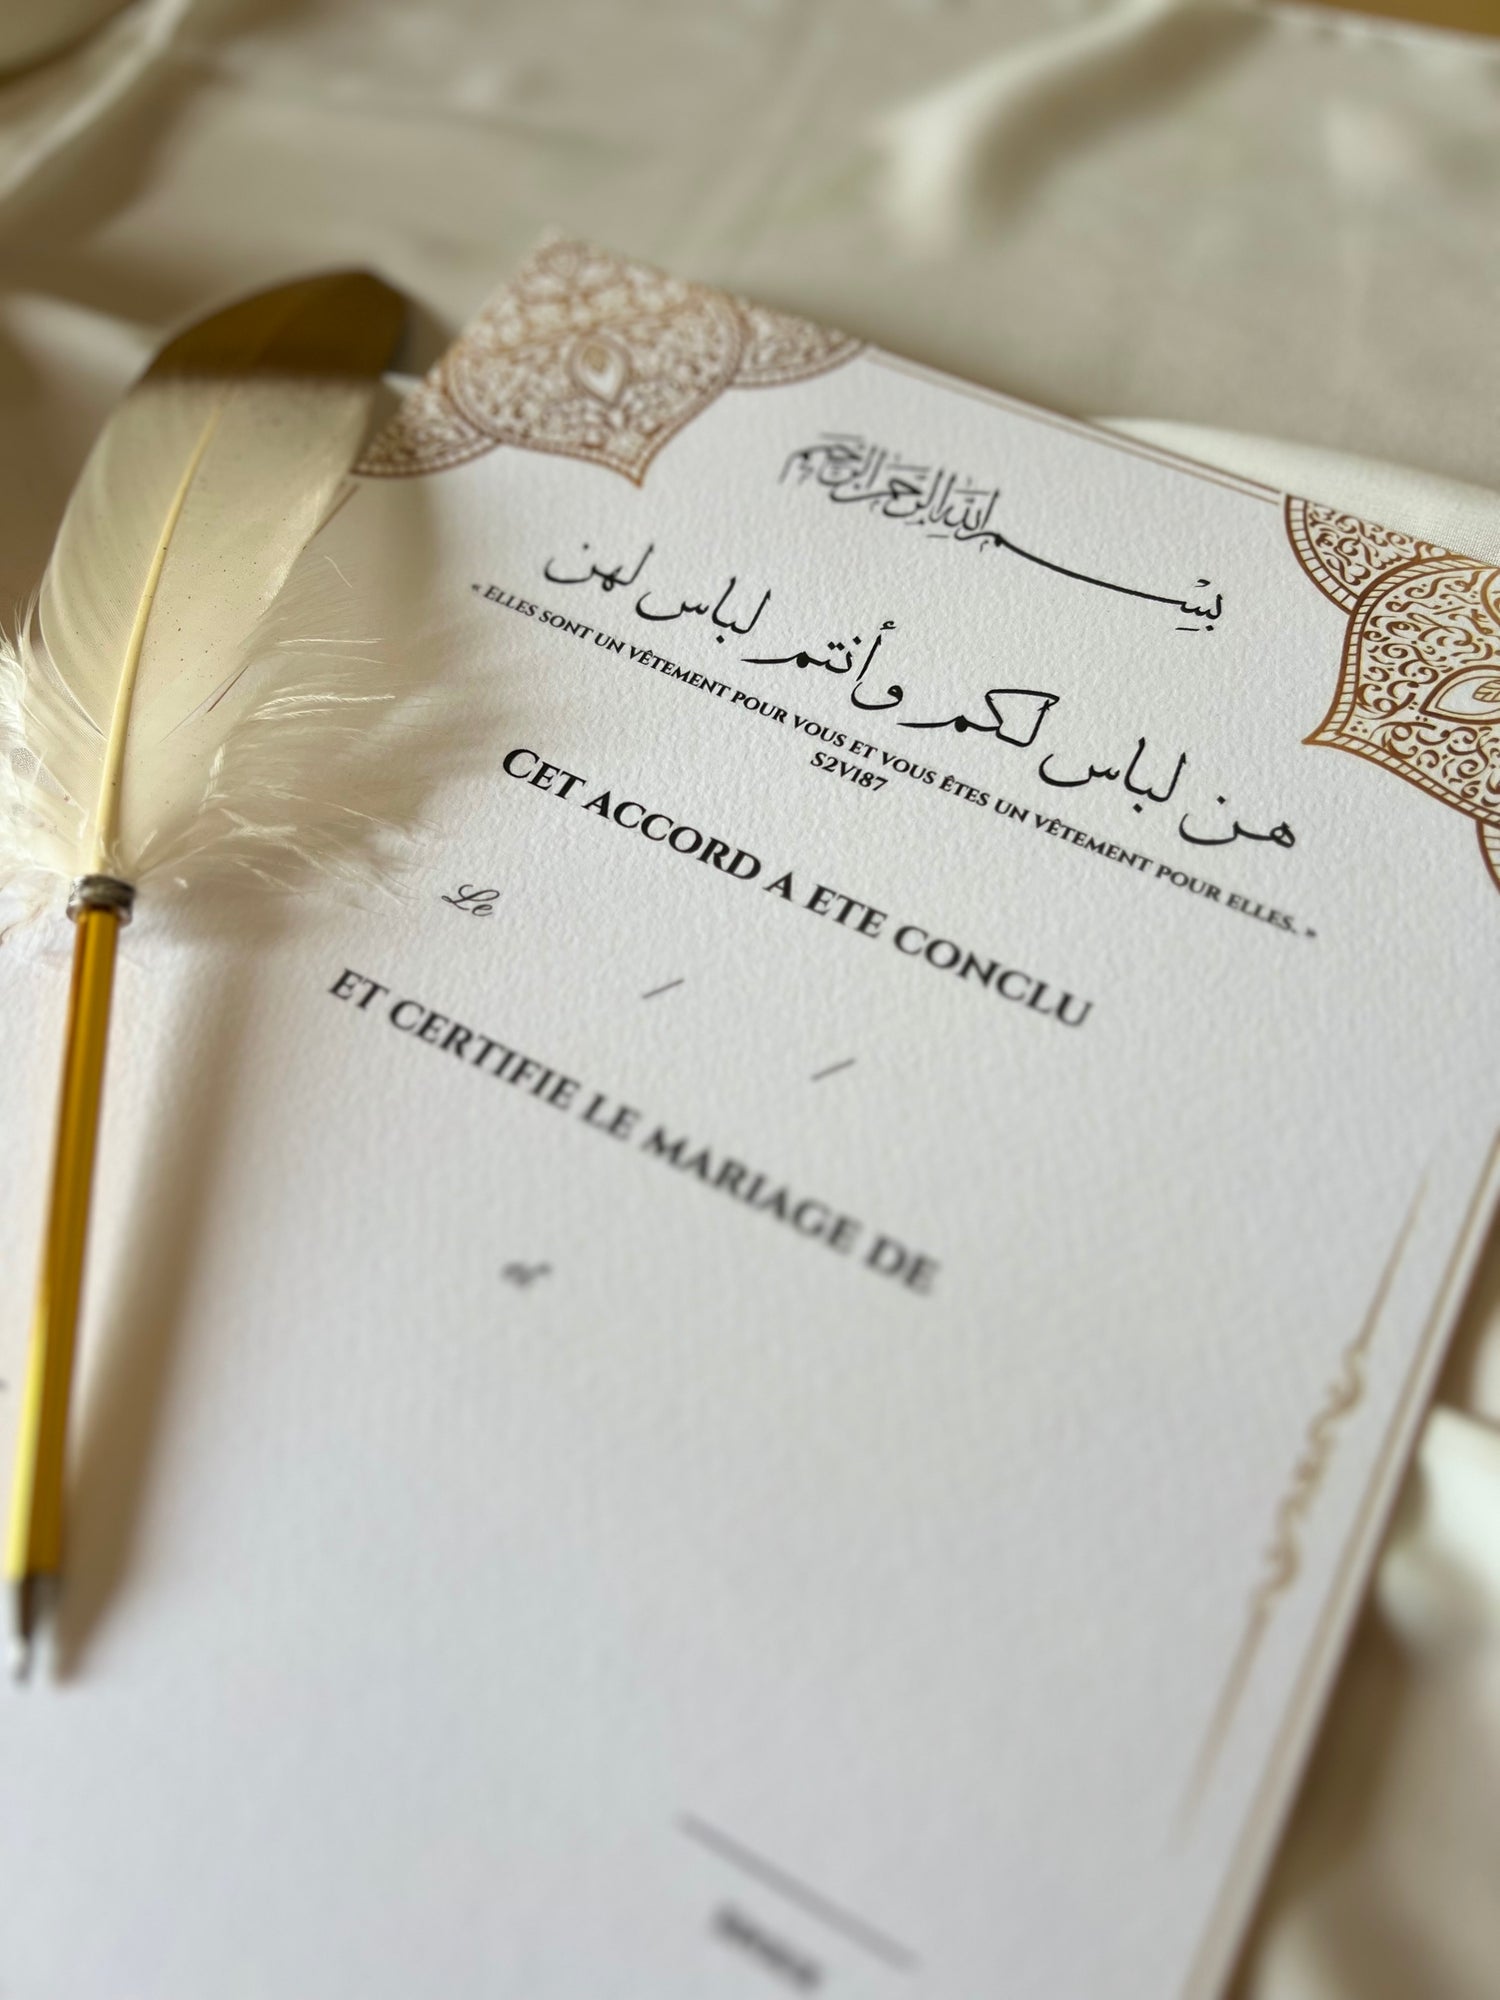 بِسْمِ اللهِ الرَّحْمٰنِ الرَّحِيْمِ
هن لباس لكم وأنتم لباس لهن
« ELLES SONT UN VÊTEMENT POUR VOUS ET VOUS ÊTES UN VÊTEMENT POUR ELLES. »
S2V187
CET ACCORD A ETE CONCLU
Le / /
ET CERTIFIE LE MARIAGE DE
et